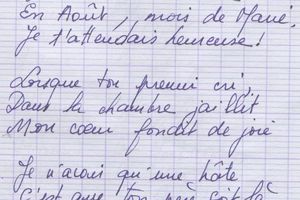 En Août, mois de Marie,
Je t'attendais heureuse !
Lorsque ton premier cri,
Dans la chambre jaillit
Mon cœur fondit de joie
Je n'avais qu'une hâte
C'est que ton père soit là